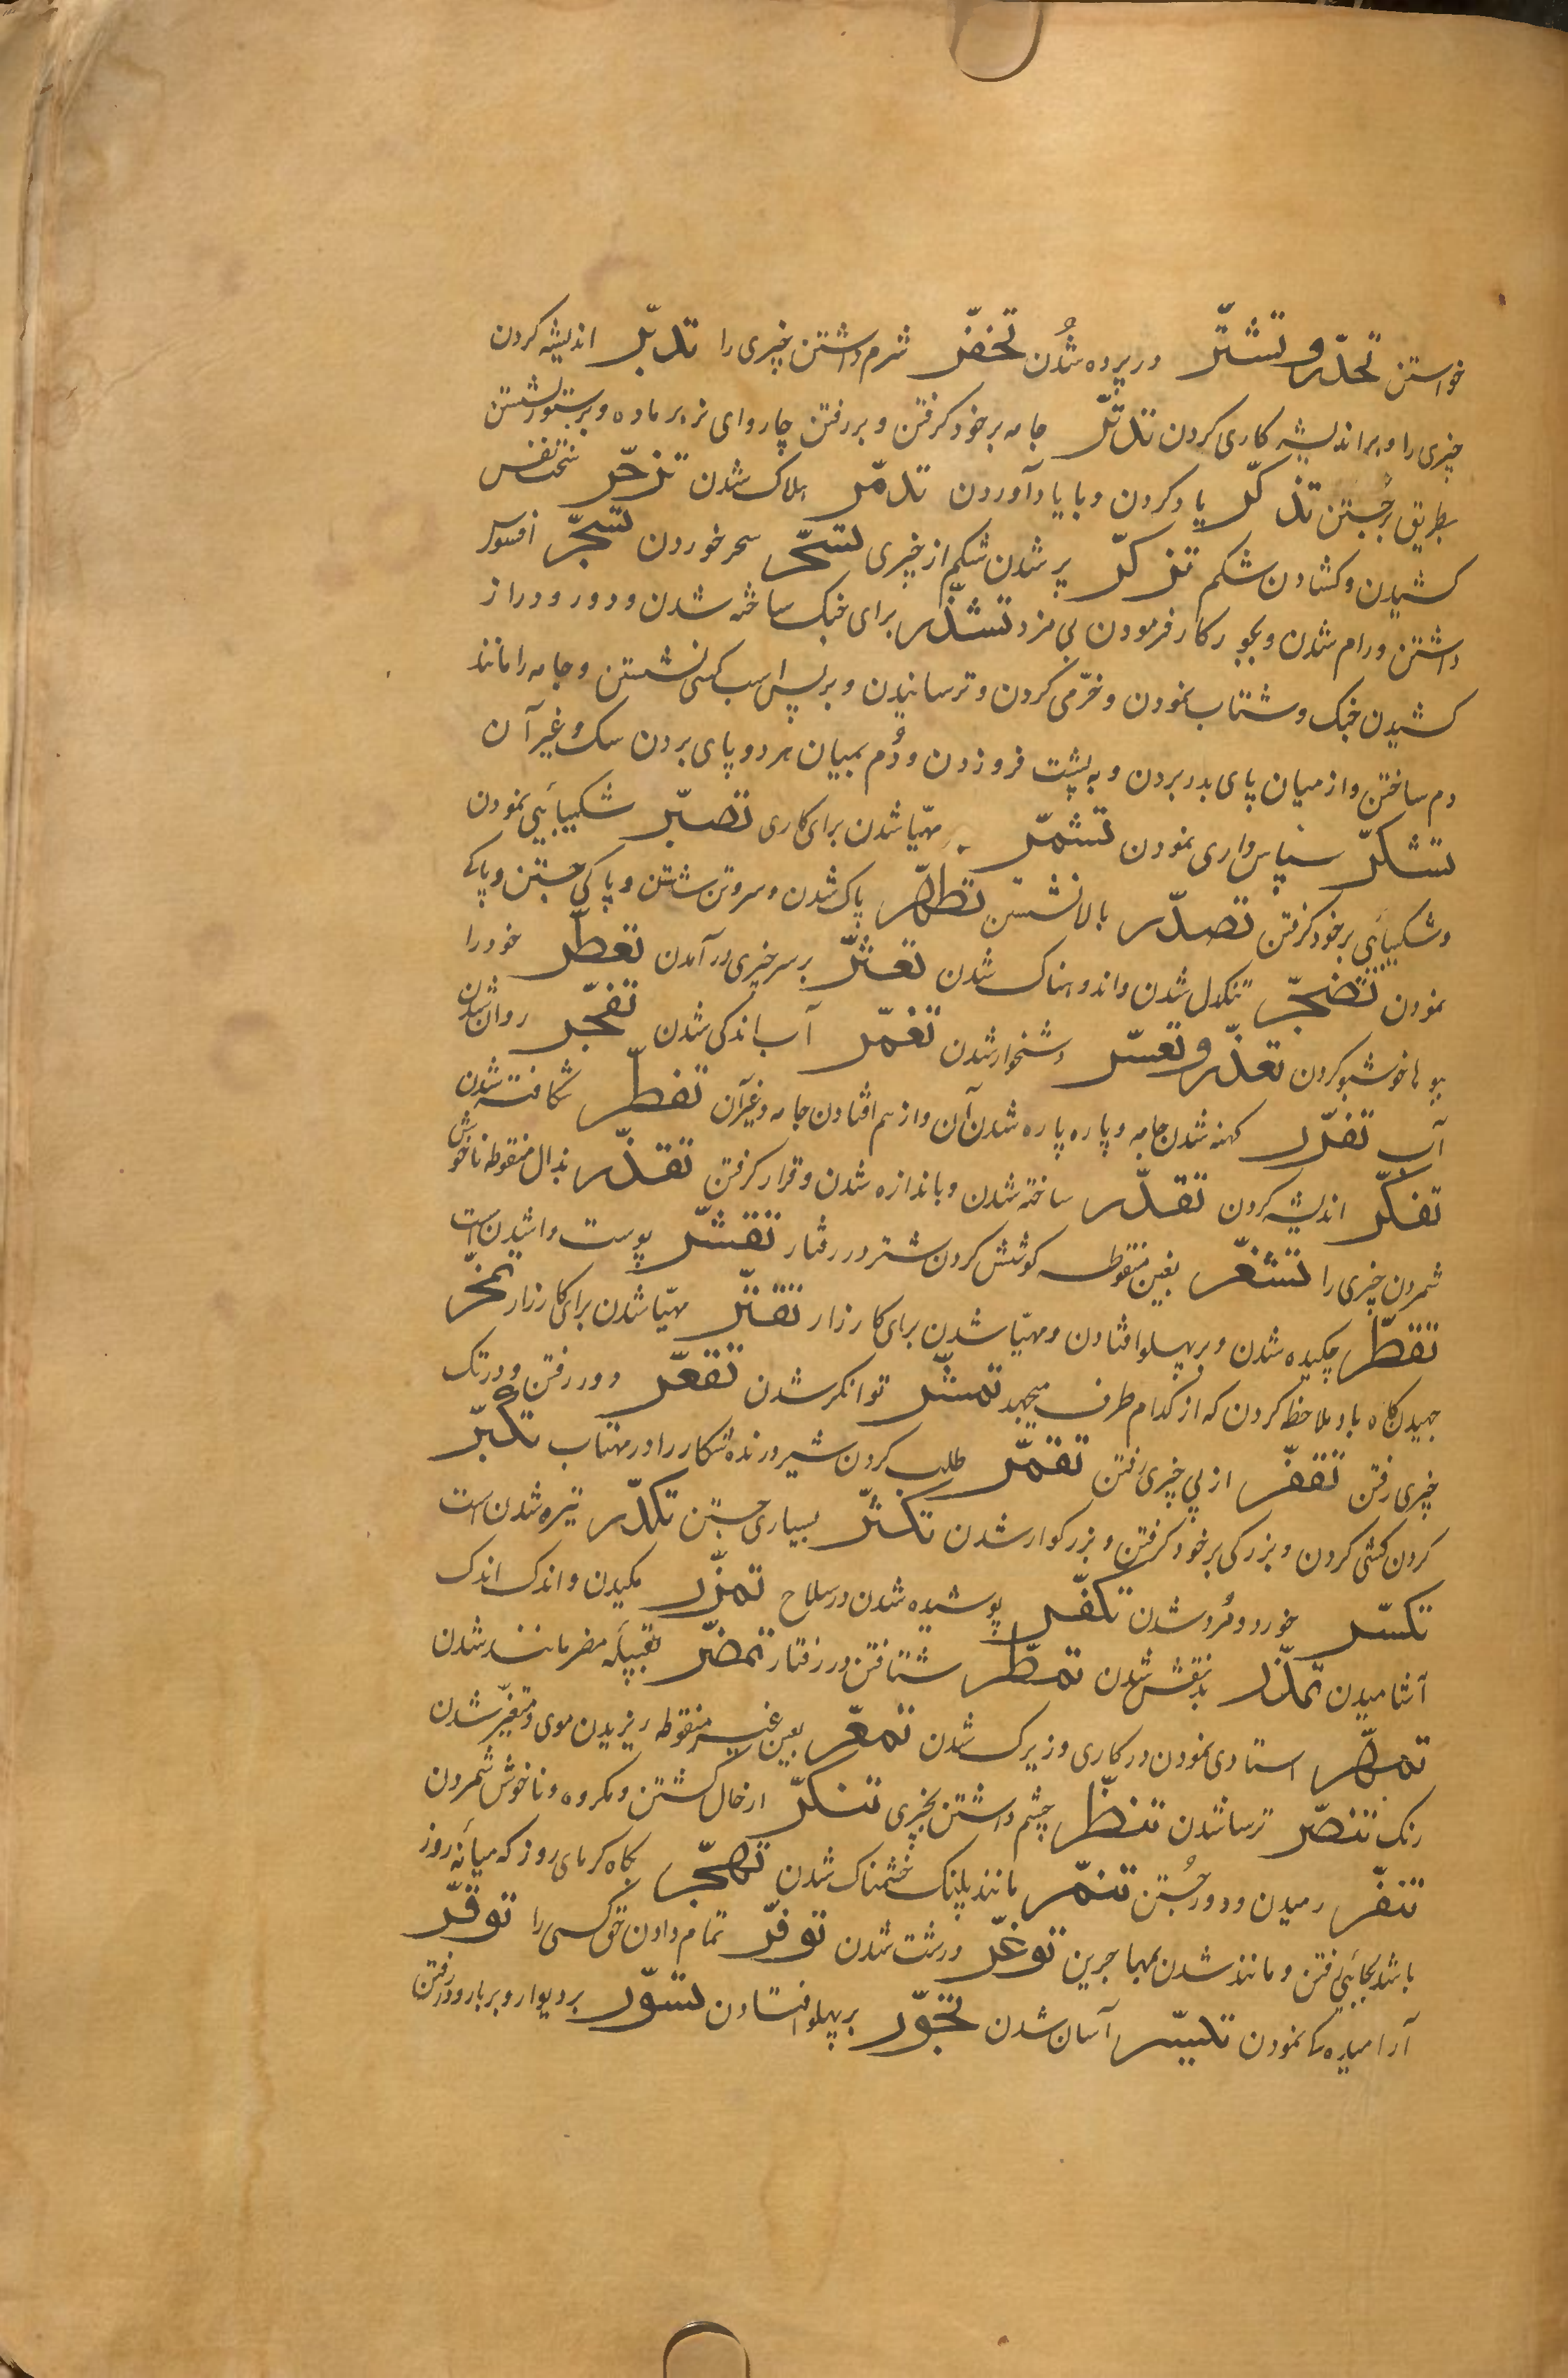 خواستن تخدّر و تستّر در پرده شدن تخفّر شرم داشتن چیزی را تدبّر اندیشه کردن
چیزی را و بر اندیشه کاری کردن تدثّر جامه بر خود گرفتن و بر رفتن چاروای نر بر ماده و بر ستور نشستن
بطریق برجستن تذکّر یاد کردن و با یاد آوردن تدمّر هلاک شدن تزحّر سخت نفس
کشیدن و کشادن شکم تزکّر پر شدن شکم از چیزی تسحّر سحر خوردن تسخّر افسوس
داشتن و رام شدن و بجور کار فرمودن بی مزد تشذّر برای جنک ساخته شدن و دور و دراز
کشیدن جنک و شتاب نمودن و خرّمی کردن و ترسانیدن و بر پس اسب کسی نشستن و جامه را مانند
دم ساختن و از میان پای بدر بردن و به پشت فرو زدن و دُم بمیان هر دو پای بردن سک و غیر آن
تشکّر سپاس داری نمودن تشمّر مهیّا شدن برای کاری تصبّر شکیبائی نمودن
و شکیبائی بر خود گرفتن تصدّر بالا نشستن تطهّر پاک شدن و سر و تن شستن و پاکی جستن و پاکی
نمودن تضجّر تنکدل شدن و اندوهناک شدن تعثّر بر سر چیزی در آمدن تعطّر خود را
ببوها خوشبو کردن تعذّر و تعسّر دشخوار شدن تغمّر آب اندکی شدن تفجّر روان شدن
آب تفزّر کهنه شدن جامه و پاره پاره شدن آن و از هم افتادن جامه و غیر آن تفطّر شکافته شدن
تفکّر اندیشه کردن تقدّر ساخته شدن و باندازه شدن و قرار گرفتن تقذّر بذال منقوطه ناخوش
شمردن چیزی را تشغّر بغین منقوطه کوشش کردن شتر در رفتار تقشّر پوست واشیدن است
تقطّر چکیده شدن و بر پهلو افتادن و مهیّا شدن برای کارزار تقتّر مهیّا شدن برای کارزار تمخّر
جهیدن کاه باد و ملاحظه کردن که از کدام طرف میجهد تمشّر توانکر شدن تقعّر دور رفتن و در تک
چیزی رفتن تقفّر از پی چیزی رفتن تقمّر طلب کردن شیر درنده شکار را در مهتاب تکبّر
کردن کشی کردن و بزرکی بر خود گرفتن و بزرکوار شدن تکثّر بسیاری جستن تکدّر تیره شدن است
تکسّر خورد و مُرد شدن تکفّر پوشیده شدن در سلاح تمزّر مکیدن و اندک اندک
آشامیدن تمذّر شدن تمطّر شتافتن در رفتار تمضّر بقبیلۀ مضر مانند شدن
تمهّر استادی نمودن در کاری و زیرک شدن تمعّر بعین غیر منقوطه ریزیدن موی و متغیّر شدن
رنک تنصّر ترسا شدن تنظّر چشم داشتن بچیزی تنکّر از حال کشتن و مکروه و ناخوش شمردن
تنفّر رمیدن و دور جُستن تنمّر مانند پلنک خشمناک شدن تهجّر بکاه کرمای روز که میانۀ روز
باشد بجائی رفتن و مانند شدن بمهاجرین توغّر درشت شدن توفّر تمام دادن حق کسی را توقّر
آرامیدهکی نمودن تیسّر آسان شدن تجوّر بر پهلو افتادن تسوّر بر دیوار و بر بارو رفتن